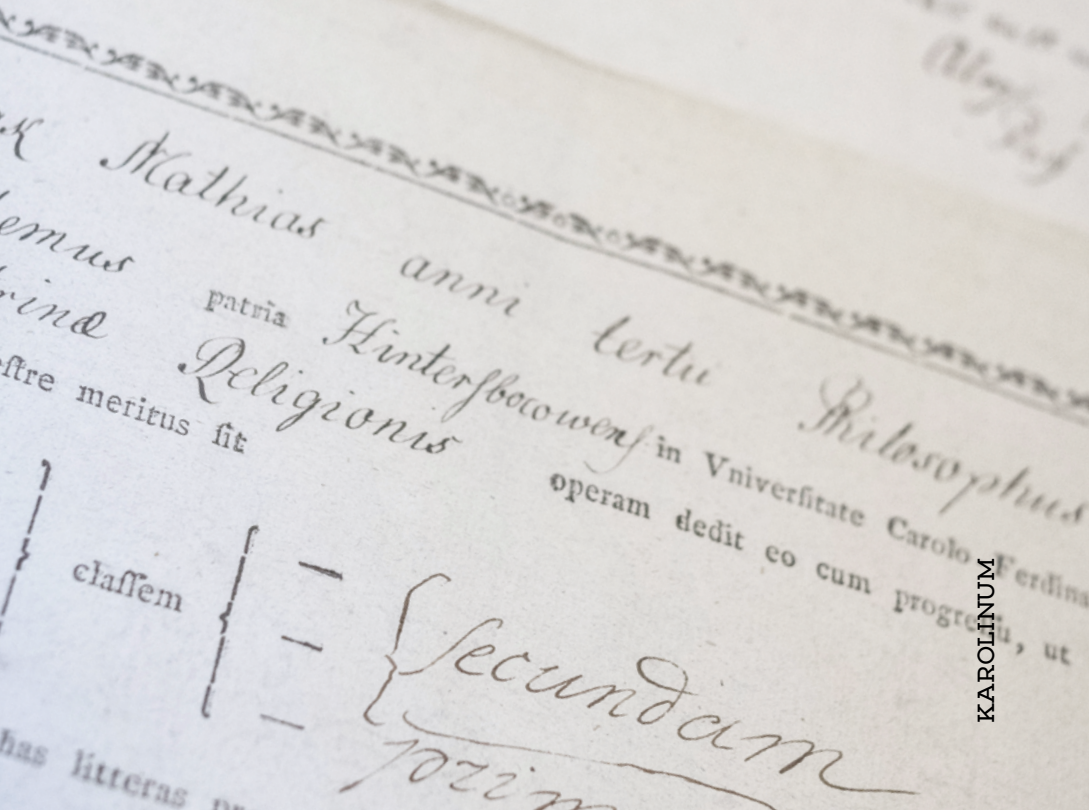 Mathias anni tertii Philosophus
emus patria Hinterſbocowenſ in Vniverſitate Carolo Ferdina
rinæ Religionis operam dedit eo cum progreſſu, ut
eſtre meritus ſit
claſſem
ſecundam
prim
has litteras
KAROLINUM